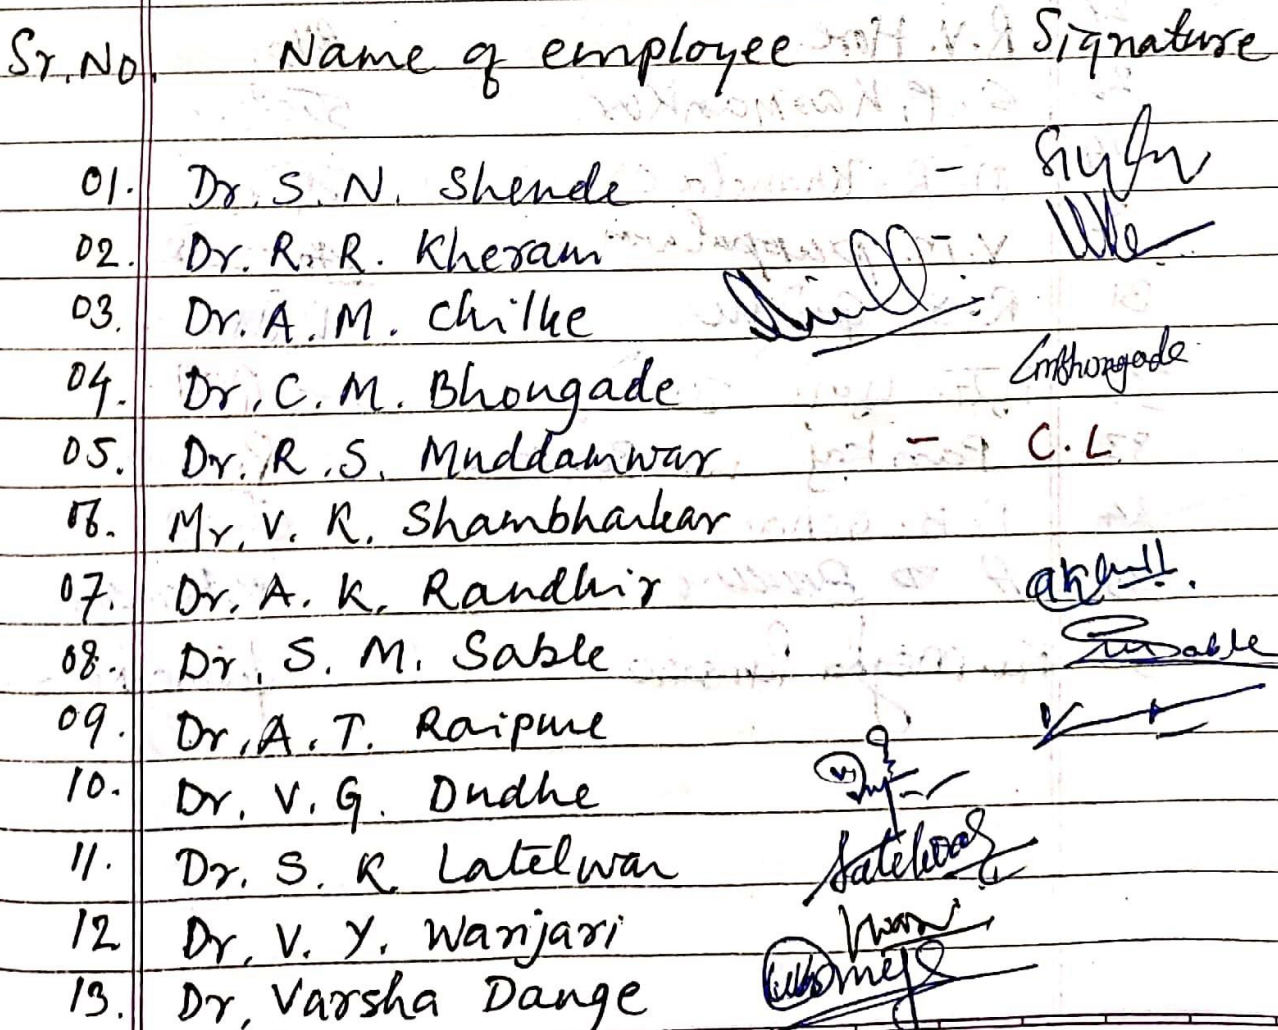 Sr. No. Name of employee Signature
01. Dr. S. N. Shende -
02. Dr. R. R. Kheram -
03. Dr. A. M. Chilke
04. Dr. C. M. Bhongade CmBhongade
05. Dr. R. S. Muddamwar - C.L
06. Mr. V. R. Shambharkar
07. Dr. A. K. Randhir
08. Dr. S. M. Sable SMSable
09. Dr. A. T. Raipure
10. Dr. V. G. Dudhe
11. Dr. S. R. Latelwar
12 Dr. V. Y. Wanjari
13. Dr. Varsha Dange